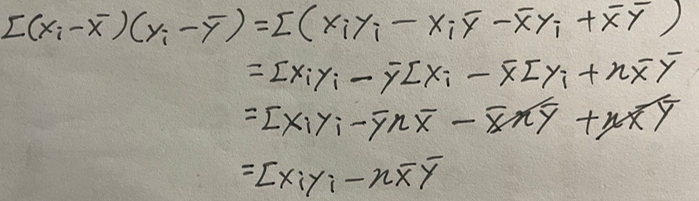 Σ(xi-x̄)(yi-ȳ)=Σ(xiyi-xiȳ-x̄yi+x̄ȳ)
=Σxiyi-ȳΣxi-x̄Σyi+nx̄ȳ
=Σxiyi-ȳnx̄-x̄nȳ+nx̄ȳ
=Σxiyi-nx̄ȳ